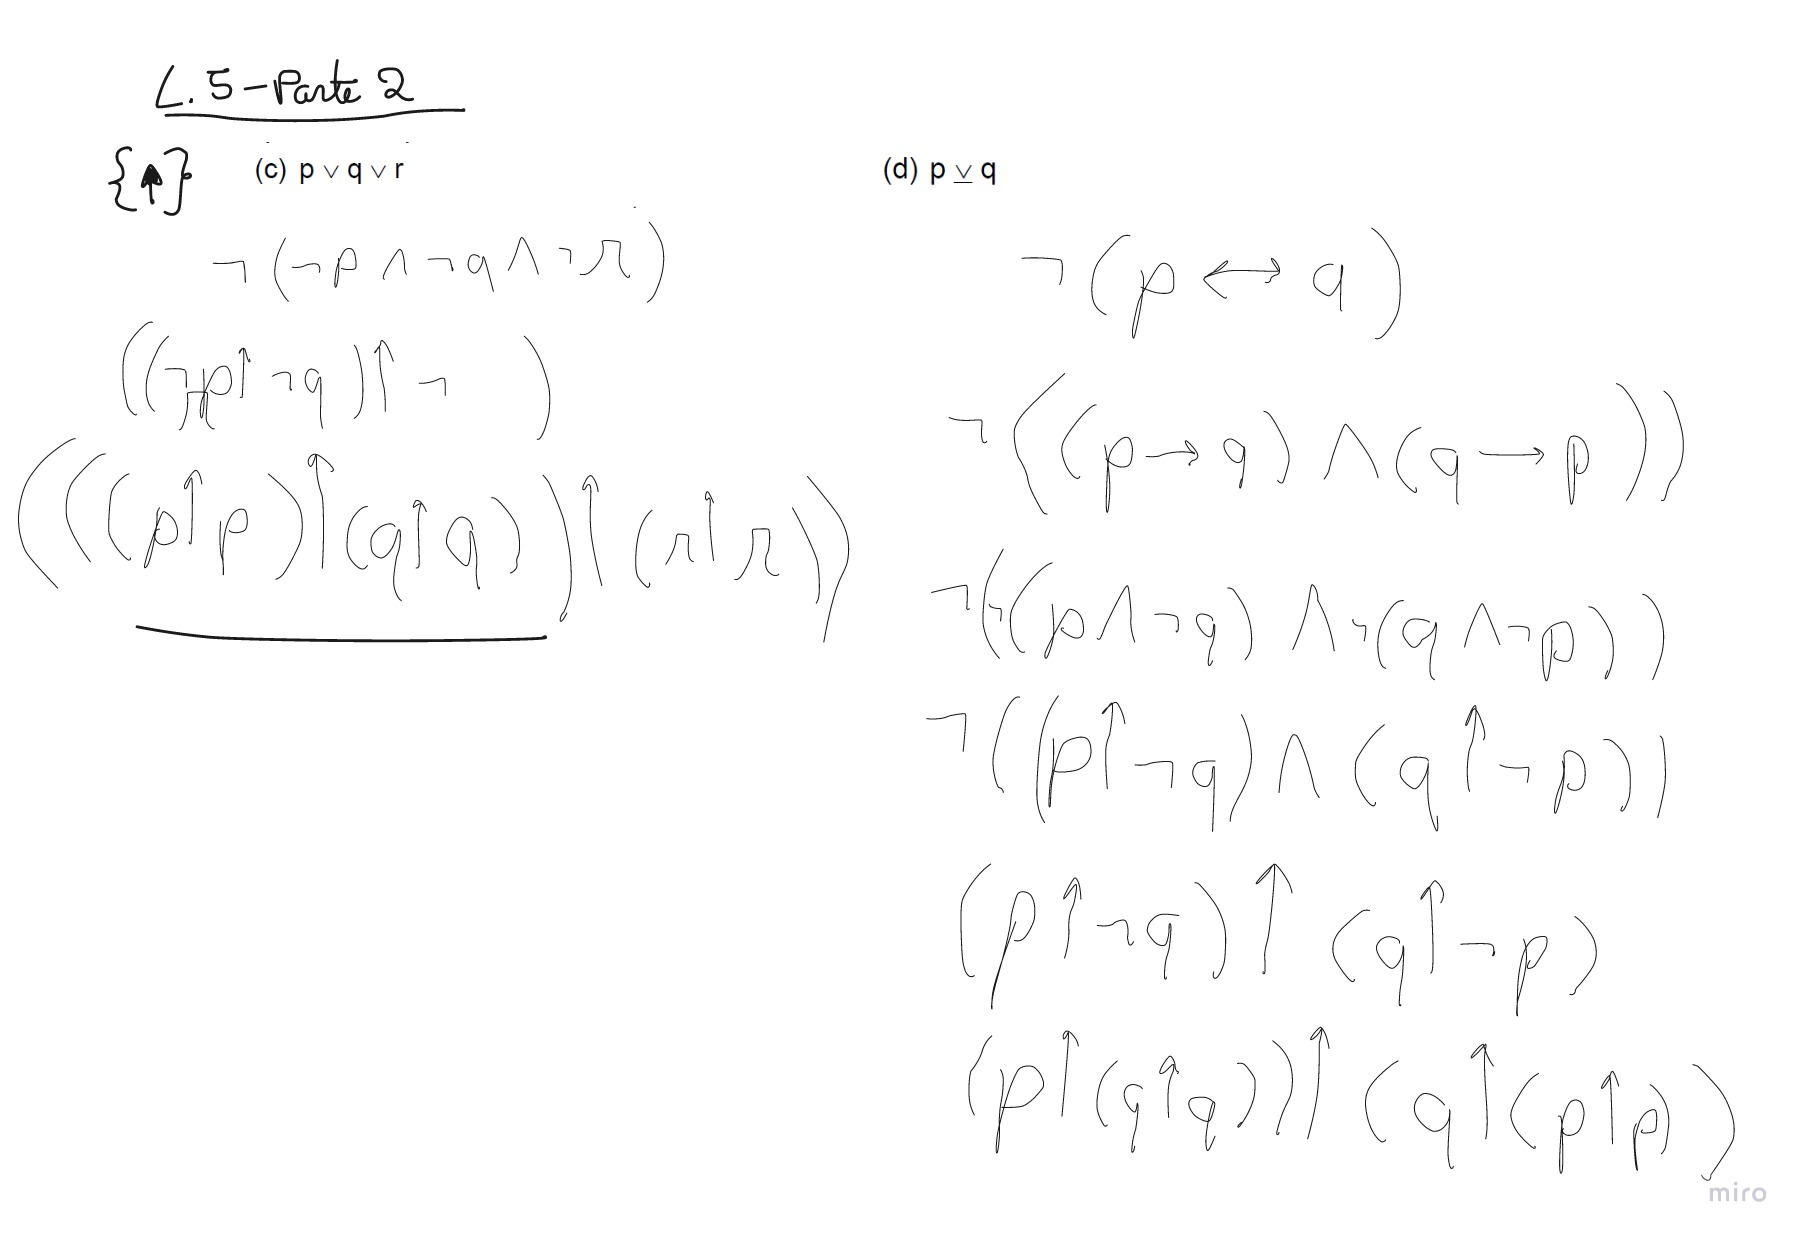 L.5 – Parte 2
{↑}
(c) p ∨ q ∨ r
¬(¬p ∧ ¬q ∧ ¬r)
((¬p ↑ ¬q) ↑ ¬ )
(((p ↑ p) ↑ (q ↑ q)) ↑ (r ↑ r))
(d) p ⊻ q
¬(p ↔ q)
¬((p → q) ∧ (q → p))
¬(¬(p ∧ ¬q) ∧ ¬(q ∧ ¬p))
¬((p ↑ ¬q) ∧ (q ↑ ¬p))
(p ↑ ¬q) ↑ (q ↑ ¬p)
(p ↑ (q ↑ q)) ↑ (q ↑ (p ↑ p))
miro